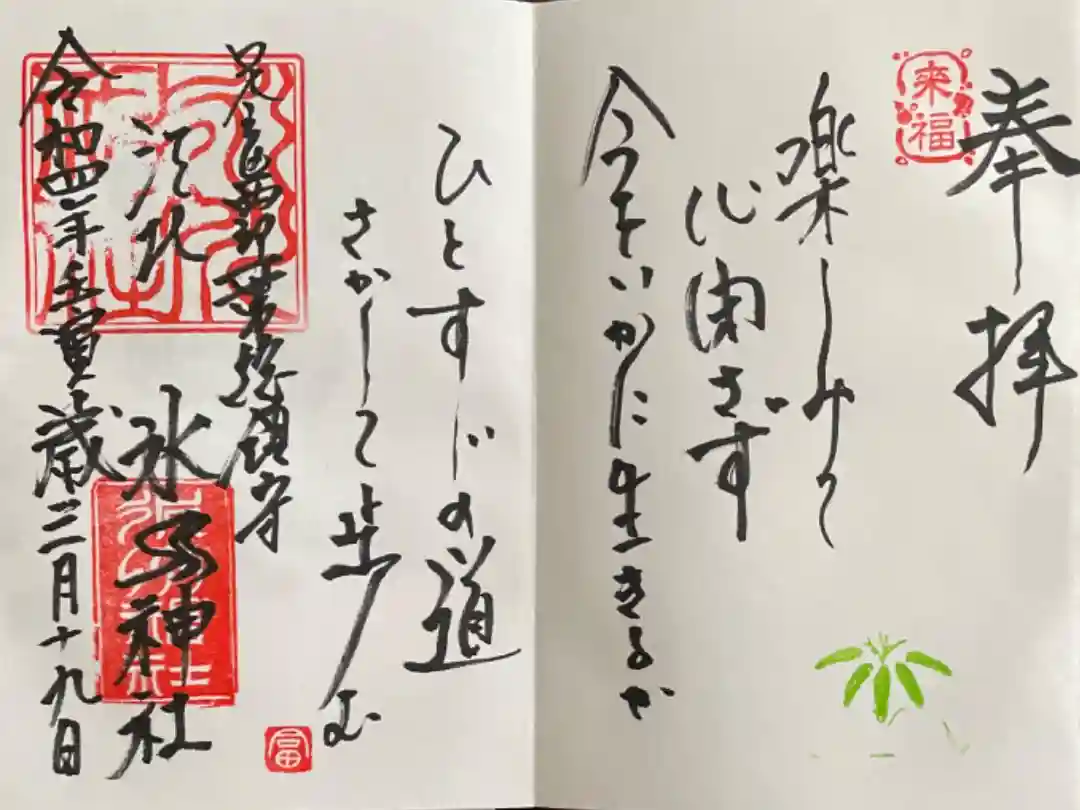 奉拝
来福
楽しみて
心閉ざす
今をいかに生きるか
ひとすじの道
さがして歩む
総鎮守
江北
氷川神社
令和四年壬寅歳三月十九日
氷川神社
富